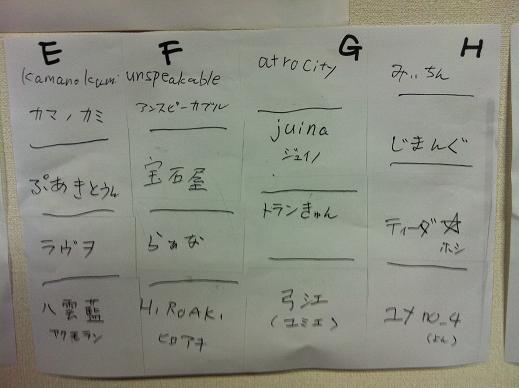 E
kamanokami
カマノカミ
ぷあきとうん
ラヴヲ
八雲藍
ヤクモラン
F
unspeakable
アンスピーカブル
宝石屋
らぁな
HIROAKI
ヒロアキ
G
atrocity
juina
ジュイノ
トランきゅん
弓江
(ユミエ)
H
みぃちん
じまんぐ
ティーダ☆
ホシ
ユメno_4
(よん)